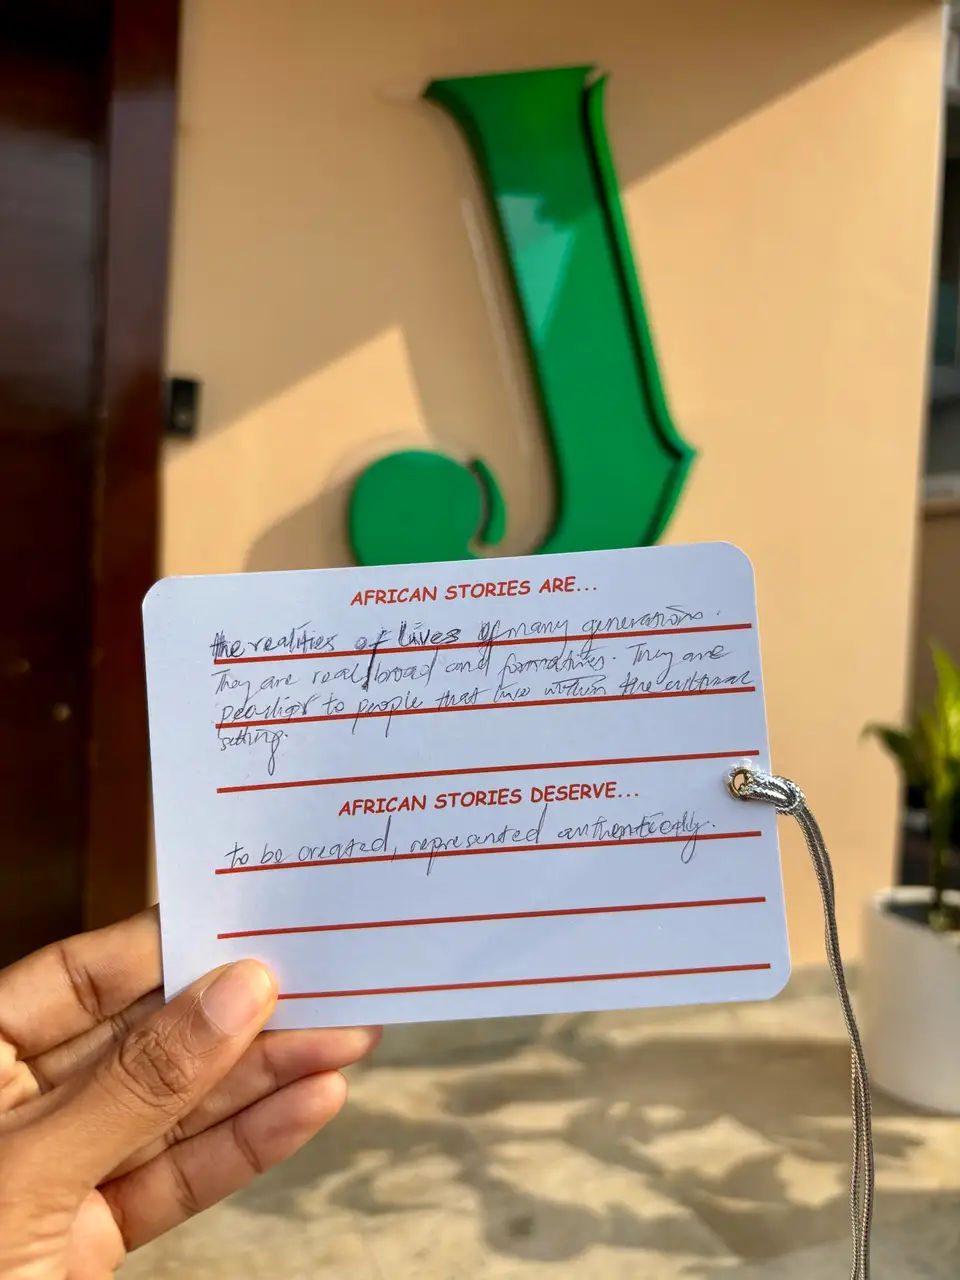 J
AFRICAN STORIES ARE...
the realities of lives of many generations.
They are real, broad and formatives. They are
peculiar to people that live within the cultural
setting.
AFRICAN STORIES DESERVE...
to be created, represented authentically.